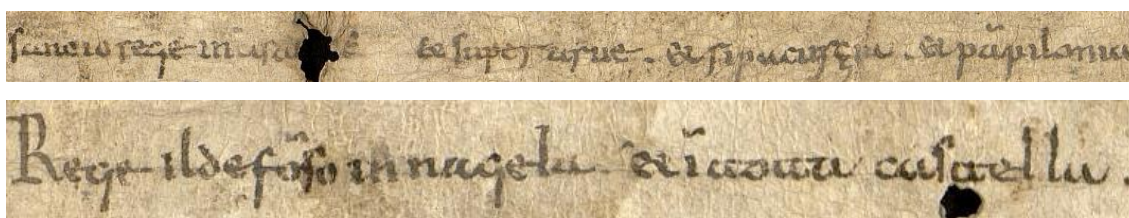 sancio rege in ara et super asue . et sipacusʒia . et pãpilonia
Rege ildefõso in nagela et ĩ tota castella .